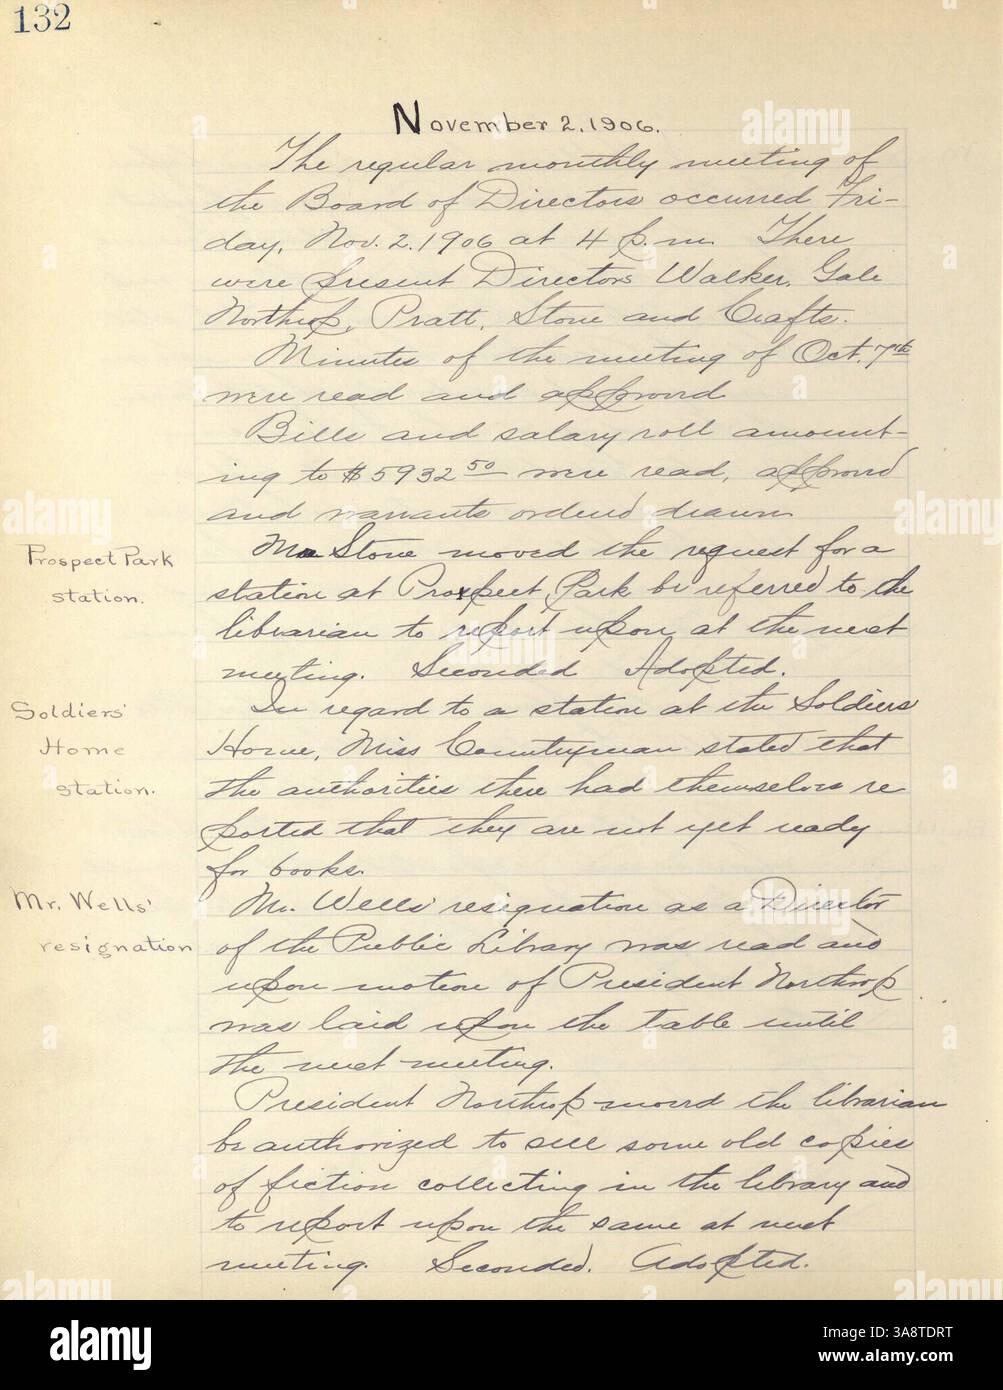 132
November 2, 1906.
The regular monthly meeting of
the Board of Directors occurred Fri-
day, Nov. 2. 1906 at 4 p.m. There
were present Directors Walker, Gale
Northrop, Pratt, Stone and Crafts.
Minutes of the meeting of Oct. 7th
were read and approved
Bills and salary roll amount-
ing to $5932 50 were read, approved
and warrants ordered drawn
Mr Stone moved the request for a
Prospect Park
station.
station at Prospect Park be referred to the
librarian to report upon at the next
meeting. Seconded Adopted.
Soldiers'
Home
station.
In regard to a station at the Soldiers
Home, Miss Countryman stated that
the authorities there had themselves re
ported that they are not yet ready
for books.
Mr. Wells'
resignation
Mr. Wells' resignation as a Director
of the Public Library was read and
upon motion of President Northrop
was laid upon the table until
the next meeting.
President Northrop moved the librarian
be authorized to sell some old copies
of fiction collecting in the library and
to report upon the same at next
meeting. Seconded. Adopted.
alamy
a
Image ID: 3A8TDRT
www.alamy.com